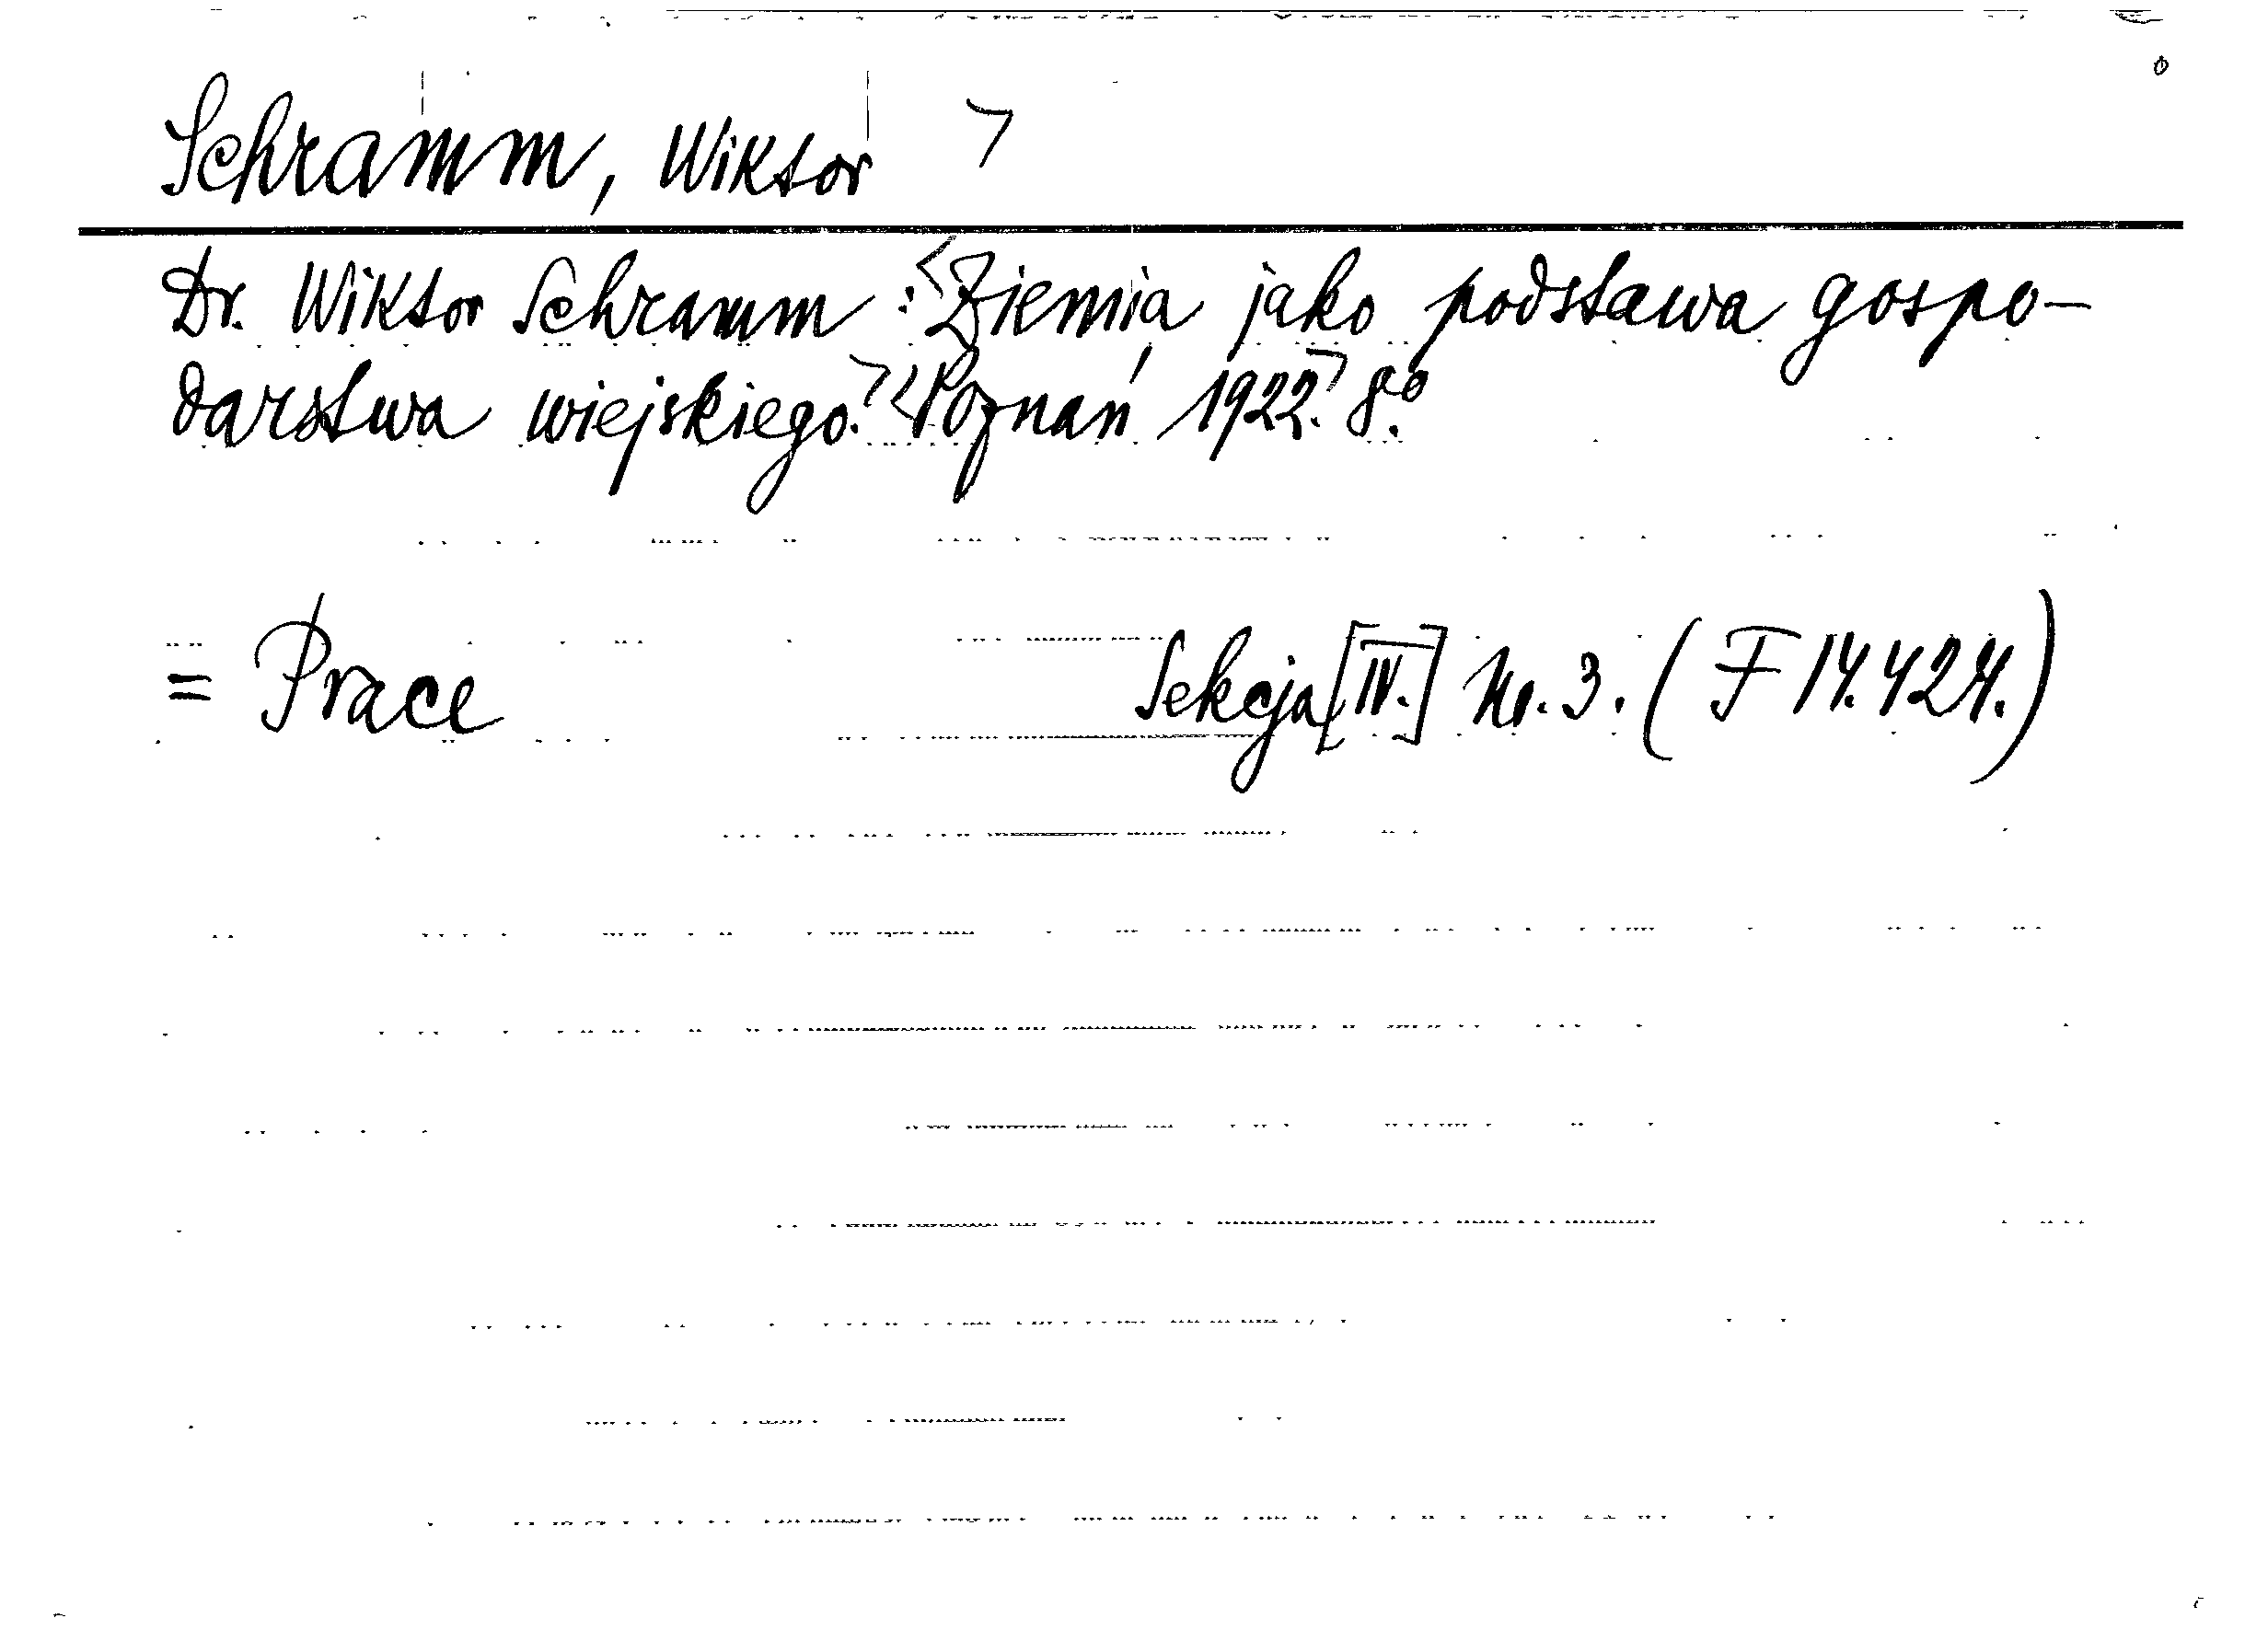 Schramm, Wiktor >
Dr. Wiktor Schramm : <Ziemia jako podstawa gospo-
darstwa wiejskiego.> <Poznań 1922.> 8.º
= Prace Sekcja [IV.] No. 3. (F 14.424.)